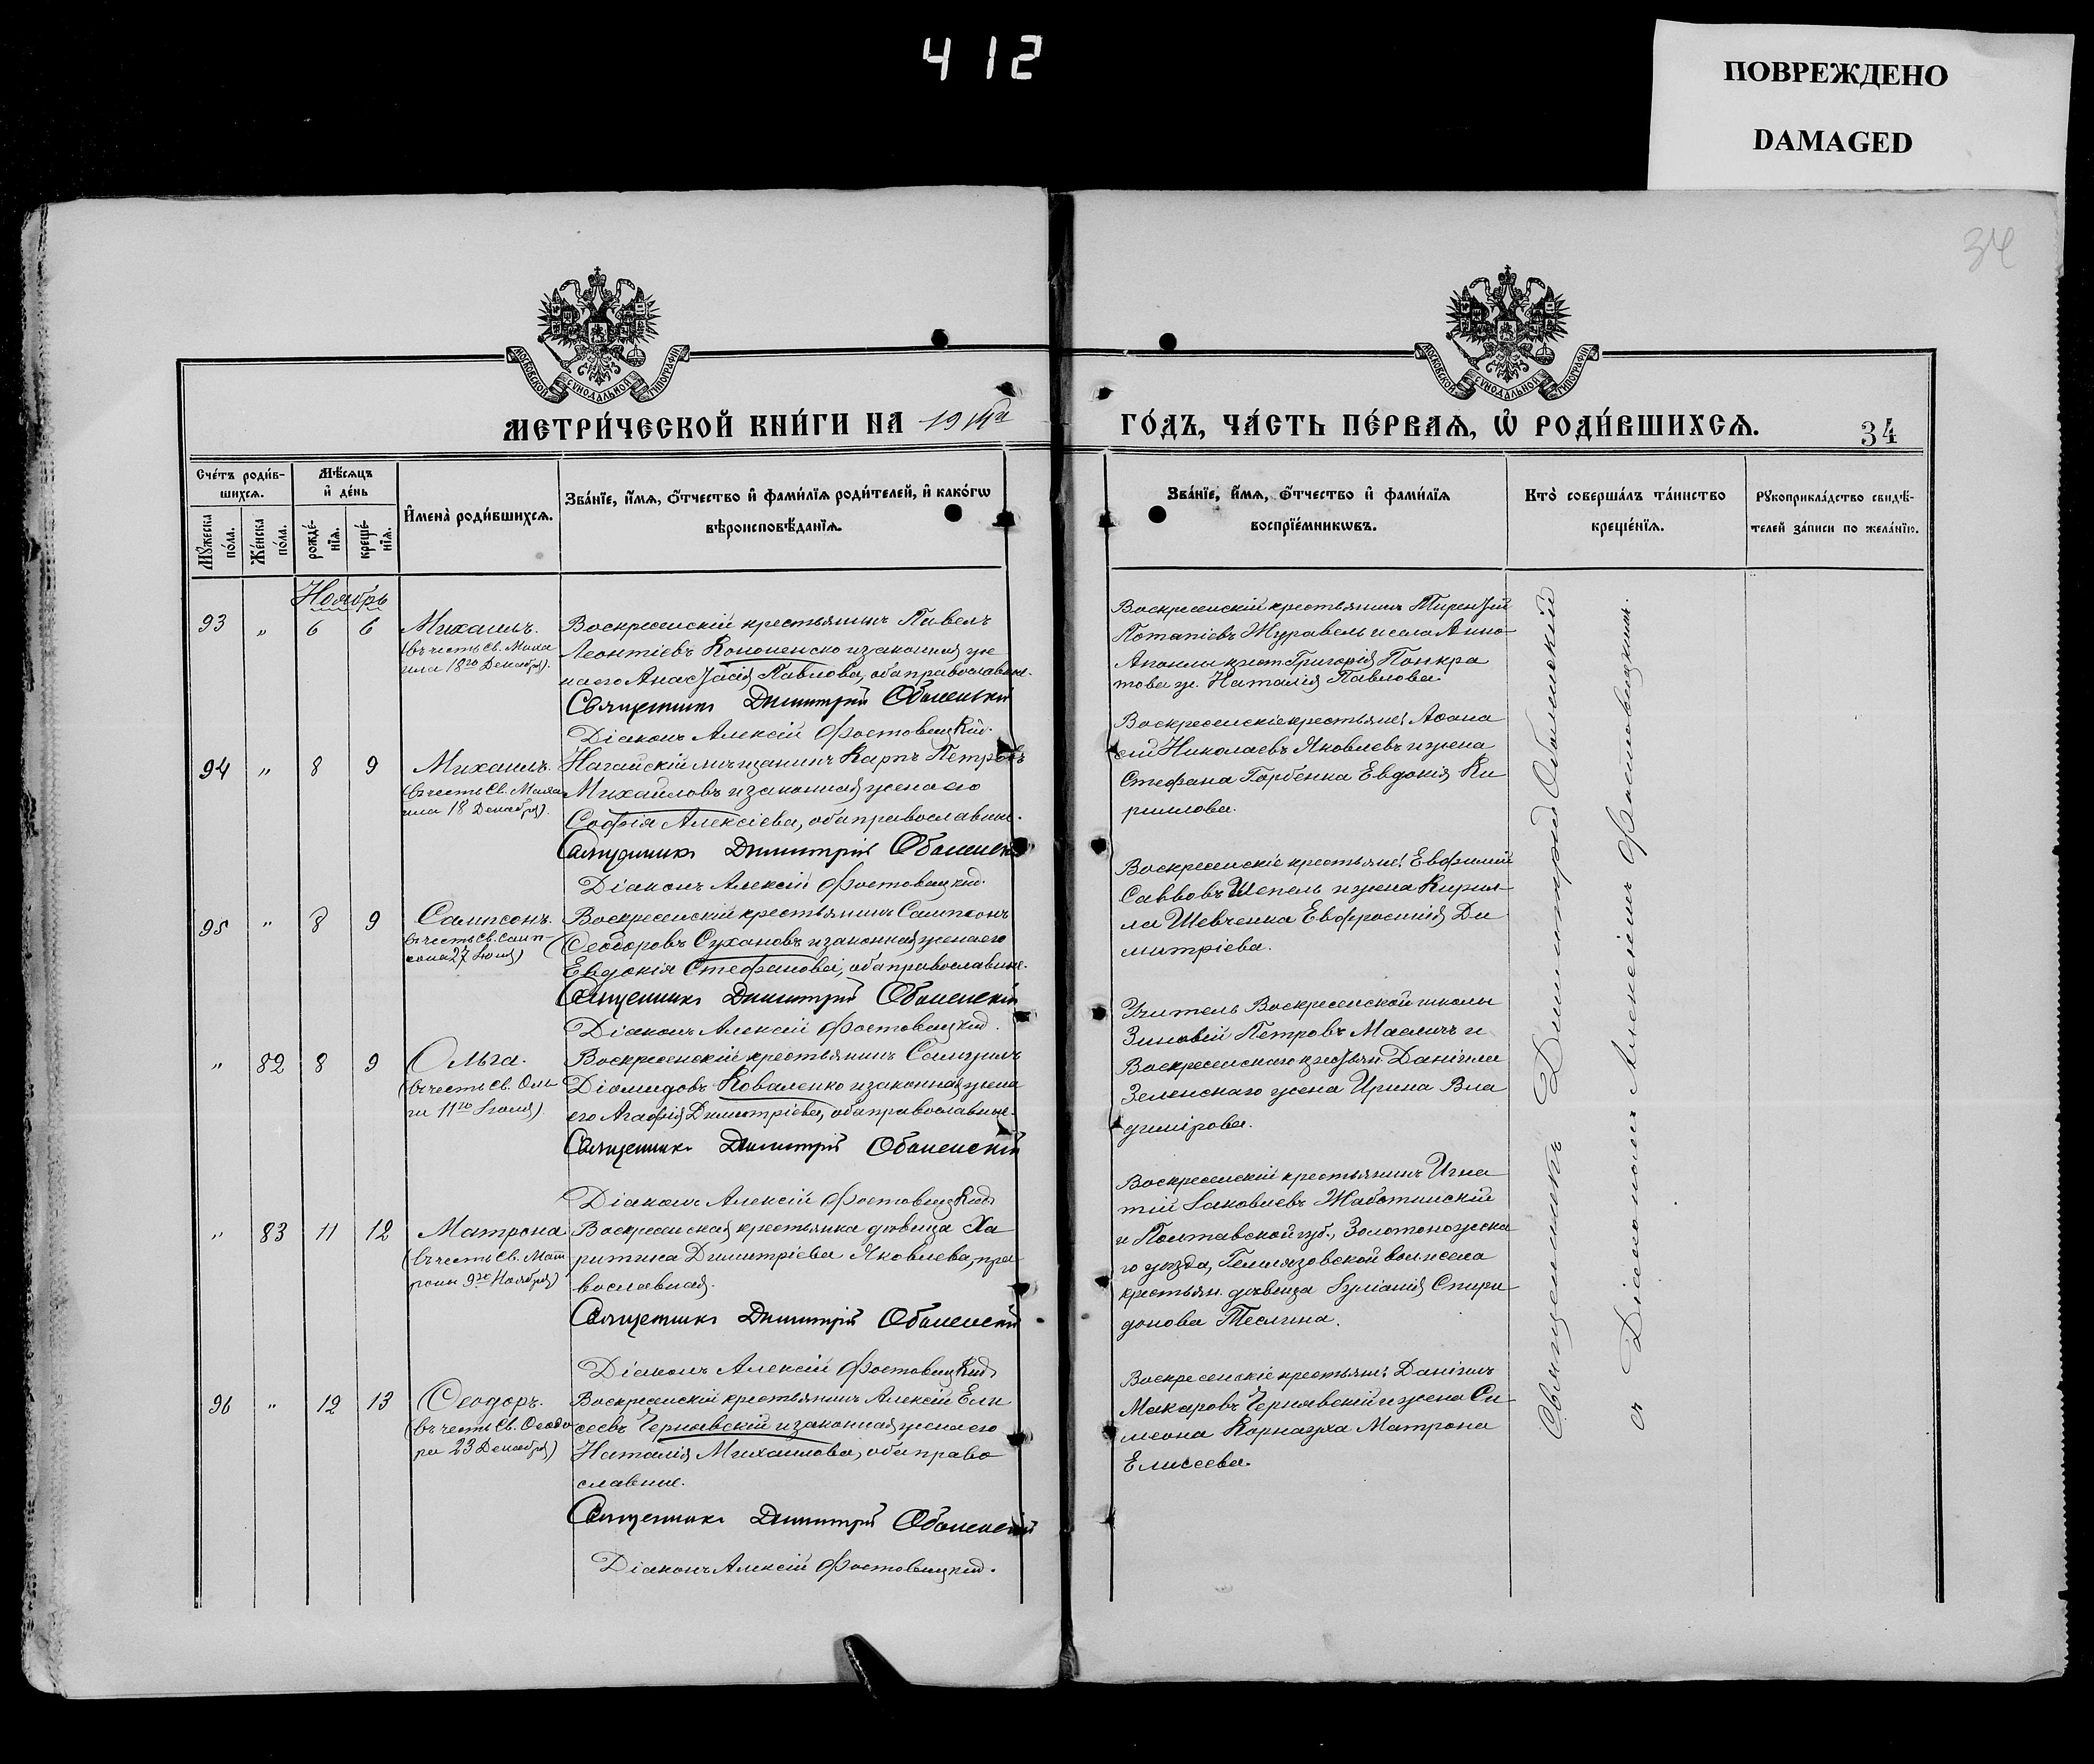 412
ПОВРЕЖДЕНО
DAMAGED
34
МОСКОВСКОЙ СѴНОДАЛЬНОЙ ТИПОГРАФІИ
МОСКОВСКОЙ СѴНОДАЛЬНОЙ ТИПОГРАФІИ
МЕТРИ́ЧЕСКОЙ КНИ́ГИ НА 1914й
ГО́ДЪ, ЧА́СТЬ ПЕ́РВАѦ, Ѡ҆ РОДИ́ВШИХСѦ.
34
Сче́тъ роди́вшихсѧ.
Мꙋ́жеска по́ла.
Же́нска по́ла.
Мѣ́сѧцъ и҆ де́нь
рожде́нїѧ.
креще́нїѧ.
И҆мена̀ роди́вшихсѧ.
Зва́нїе, и҆́мѧ, ѻ҆́тчество и҆ фами́лїѧ роди́телей, и҆ како́гѡ
вѣроисповѣ́данїѧ.
Зва́нїе, и҆́мѧ, ѻ҆́тчество и҆ фами́лїѧ
воспрїе́мникѡвъ.
Кто̀ соверша́лъ та́инство
креще́нїѧ.
Рꙋкоприкла́дство свидѣ́-
телей за́писи по жела́нїю.
Ноябрь
93 " 6 6 Михаилъ.
(въ честь Св. Миха
ила 18го Декабря).
Воскресенскій крестьянинъ Павелъ
Леонтіевъ Кононенко и законная же
на его Анастасія Павлова, оба православные.
Священникъ Димитрій Оболенскій
Діаконъ Алексій Фостовецкій.
Воскресенскій крестьянинъ Терентій
Потапіевъ Журавель и села Анно-
крест. Григорія Панкра
това ж. Наталія Павлова.
94 " 8 9 Михаилъ.
(въ честь Св. Миха
ила 18 Декабря).
Ногайскій мѣщанинъ Карпъ Петровъ
Михайловъ и законная жена его
Софія Алексіева, оба православные.
Священникъ Димитрій Оболенскій
Діаконъ Алексій Фостовецкій.
Воскресенскіе крестьяне: Аѳана
сій Николаевъ Яковлевъ и жена
Стефана Горбенка Евдокія Ки
риллова.
95 " 8 9 Сампсонъ.
(въ честь Св. Самп-
сона 27 Іюня)
Воскресенскій крестьянинъ Сампсонъ
Ѳеодоровъ Сухановъ и законная жена его
Евдокія Стефанова, оба православные.
Священникъ Димитрій Оболенскій
Діаконъ Алексій Фостовецкій.
Воскресенскіе крестьяне: Евфимій
Саввовъ Шепель и жена Кирил-
ла Шевченка Евфросинія Ди
митріева.
" 82 8 9 Ольга.
(въ честь Св. Оль
ги 11го Іюля)
Воскресенскій крестьянинъ Самуилъ
Діомидовъ Коваленко и законная жена
его Агафія Димитріева, оба православные.
Священникъ Димитрій Оболенскій
Діаконъ Алексій Фостовецкій
Учитель Воскресенской школы
Зиновій Петровъ Масличъ и
Воскресенскаго крестьян. Даніила
Зеленскаго жена Ирина Вла
димірова.
" 83 11 12 Матрона
(въ честь Св. Мат
роны 9го Ноября)
Воскресенская крестьянка дѣвица Ха
ритина Димитріева Яковлева, пра
вославная.
Священникъ Димитрій Оболенскій
Діаконъ Алексій Фостовецкій
Воскресенскій крестьянинъ Игна
тій Іаковлевъ Жаботинскій
и Полтавской губ., Золотоношска
го уѣзда, Гельмязовской вол. и села
крестьян. дѣвица Іуліанія Спири
донова Теслина.
96 " 12 13 Ѳеодоръ.
(въ честь Св. Ѳеодо
ра 23 Декабря)
Воскресенскій крестьянинъ Алексій Ели
сеевъ Чернявскій и законная жена его
Наталія Михаилова, оба право
славные.
Священникъ Димитрій Оболенскій
Діаконъ Алексій Фостовецкій.
Воскресенскіе крестьяне: Даніилъ
Макаровъ Чернявскій и жена Си
меона Карнауха Матрона
Елисеева.
Священникъ Димитрій Оболенскій
съ Діакономъ Алексіемъ Фостовецкимъ.